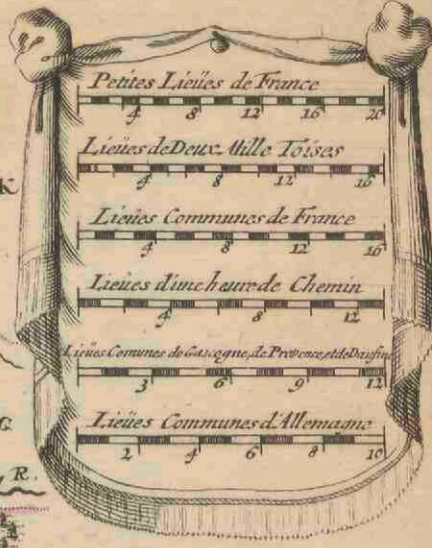 Petites Lieües de France
4 8 12 16 20
Lieües de Deux Mille Toises
4 8 12 16
K
Lieües Communes de France
4 8 12 16
Lieües d'une heure de Chemin
4 8 12
Lieües Comunes de Gascogne, de Provence, et de Daufiné
3 6 9 12
G
Lieües Communes d'Allemagne
2 4 6 8 10
R.